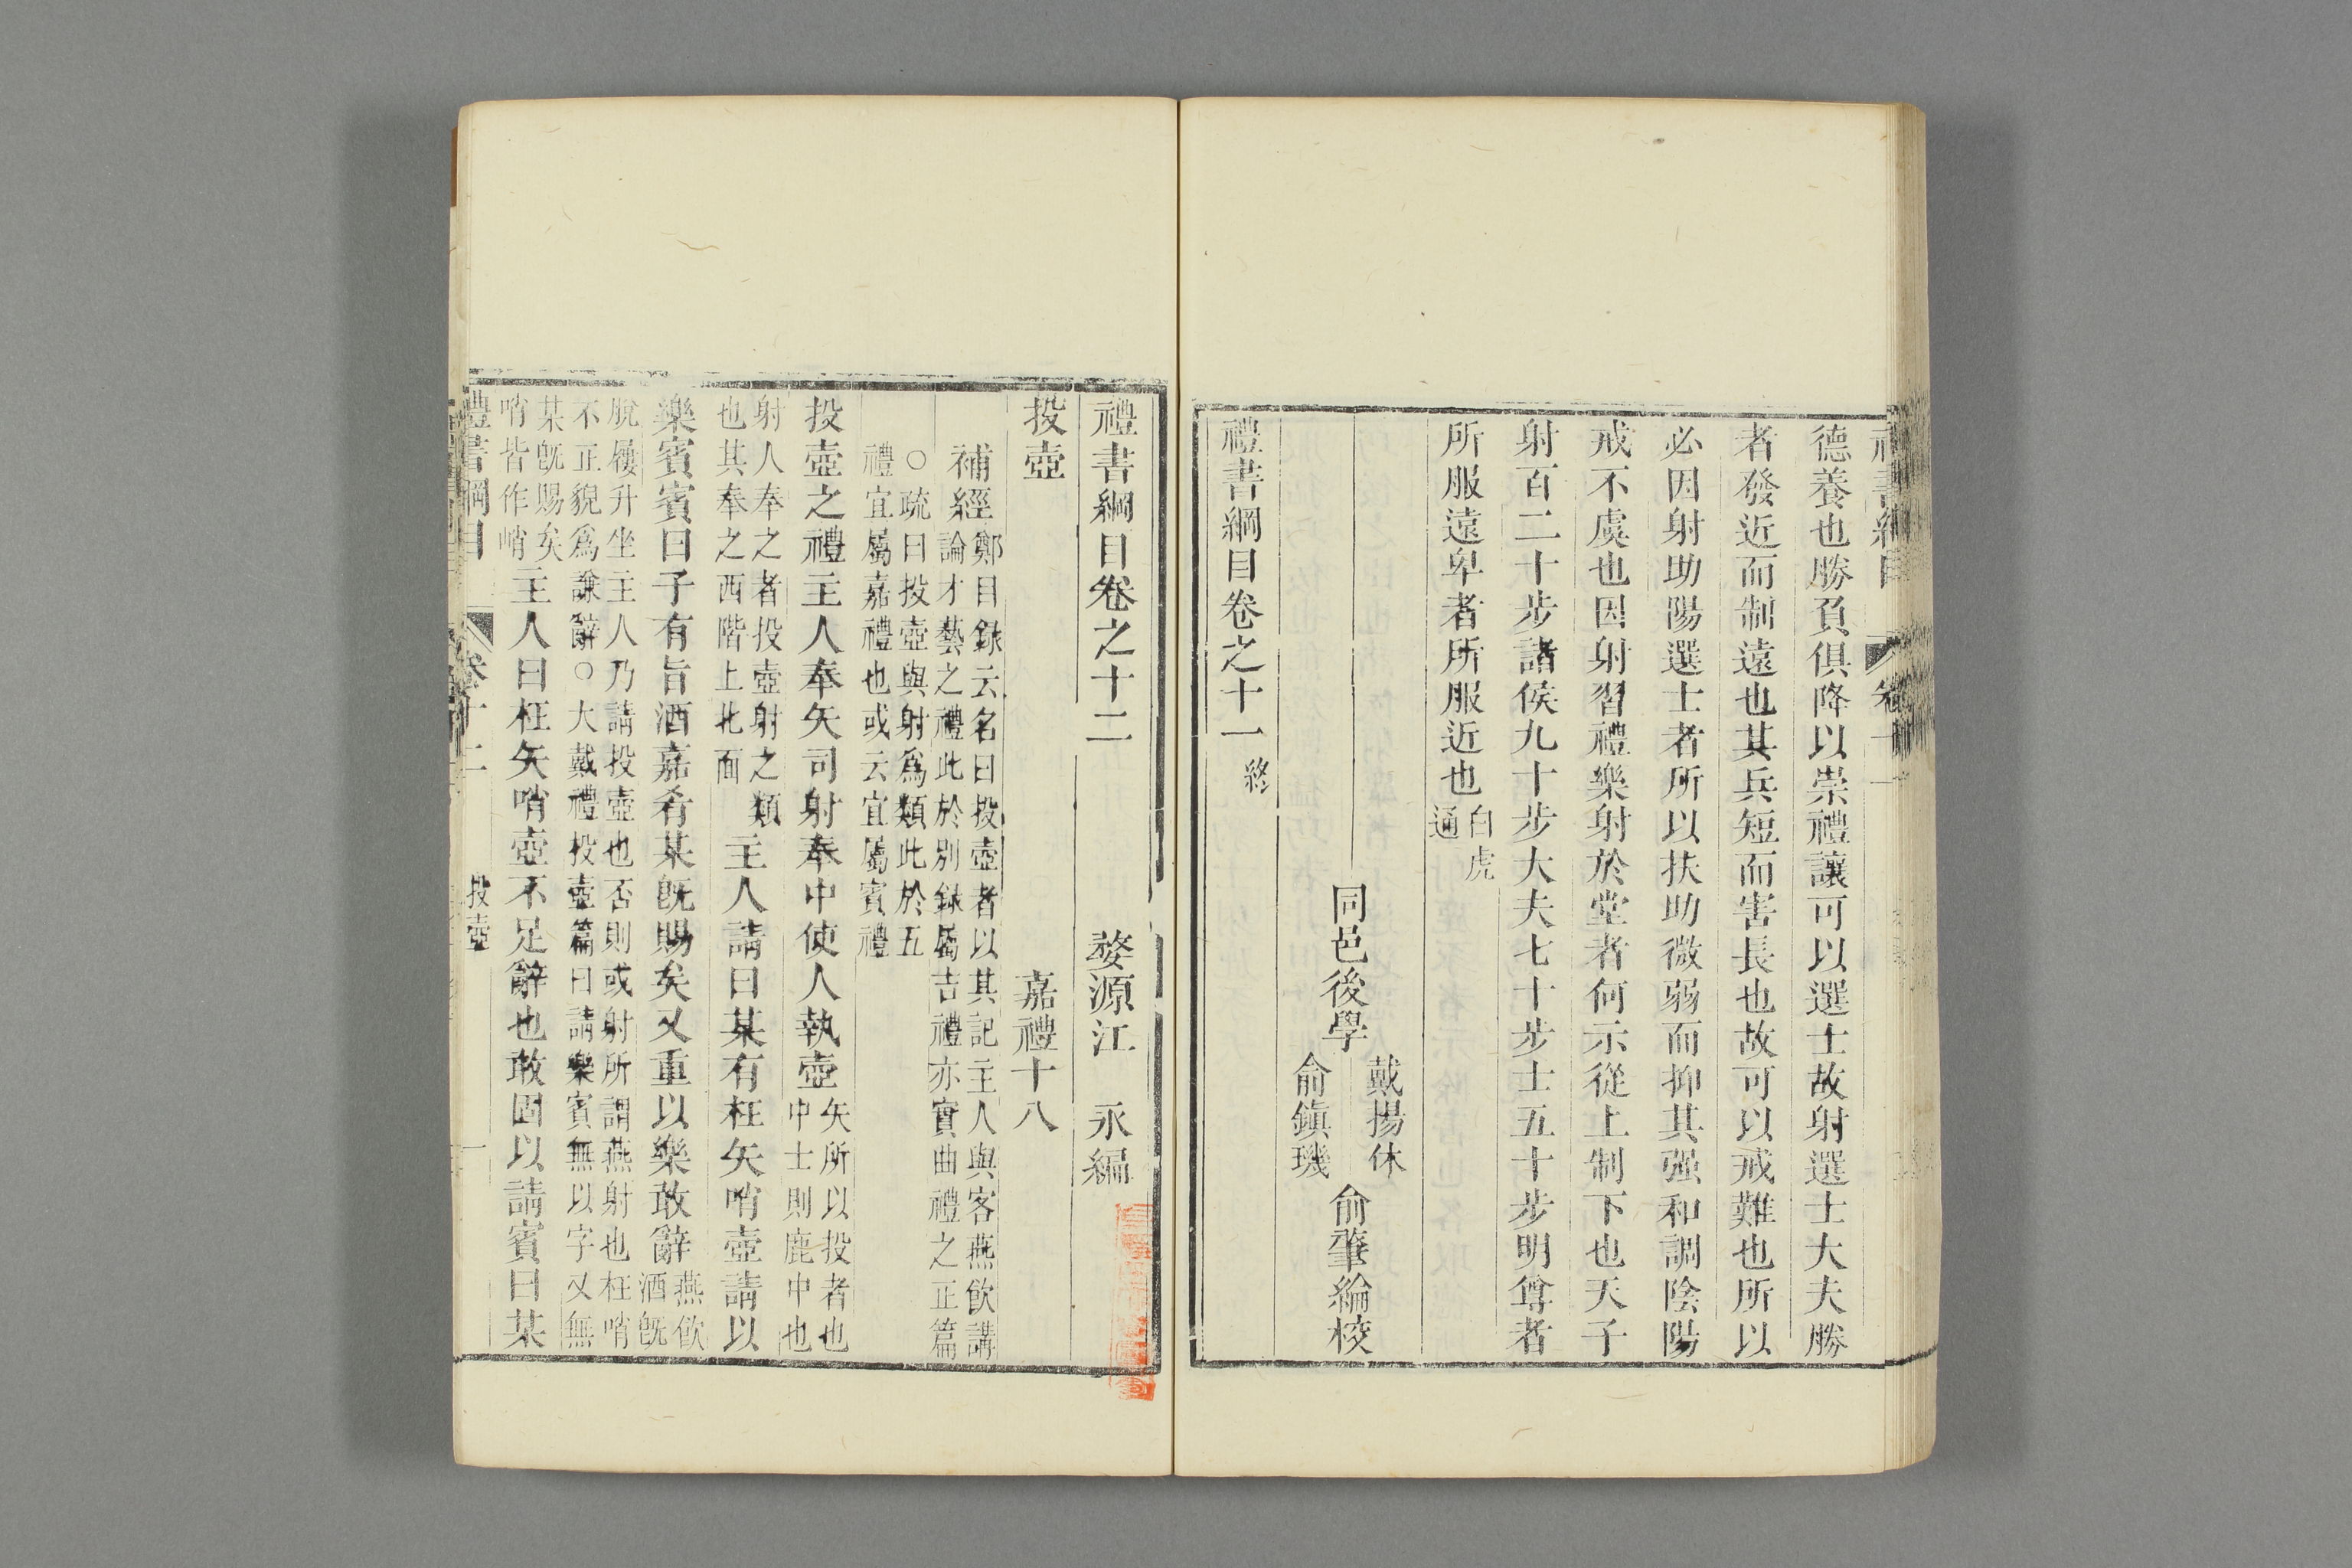 德養也勝負俱降以崇禮讓可以選士故射選士大夫勝
者發近而制遠也其兵短而害長也故可以戒難也所以
必因射助陽選士者所以扶助微弱而抑其强和調陰陽
戒不虞也因射習禮樂射於堂者何示從上制下也天子
射百二十步諸侯九十步大夫七十步士五十步明尊者
所服遠卑者所服近也白虎
通
同邑後學
戴揚休
俞鎮璣
俞肇綸校
禮書綱目卷之十一終
禮書綱目卷之十二
婺源江 永編
投壺
嘉禮十八
補經鄭目錄云名曰投壺者以其記主人與客燕飲講
論才藝之禮此於別錄屬吉禮亦實曲禮之正篇
○疏曰投壺與射爲類此於五
禮宜屬嘉禮也或云宜屬賓禮
投壺之禮主人奉矢司射奉中使人執壺矢所以投者也
中士則鹿中也
射人奉之者投壺射之類
也其奉之西階上北面
主人請曰某有枉矢哨壺請以
樂賓賓曰子有旨酒嘉肴某旣賜矣又重以樂敢辭燕飲
酒旣
脫屨升坐主人乃請投壺也否則或射所謂燕射也枉哨
不正貌爲謙辭○大戴禮投壺篇曰請樂賓無以字又無
某旣賜矣
哨皆作峭
主人曰枉矢哨壺不足辭也敢固以請賓曰某
禮書綱目
卷十二
投壺
一